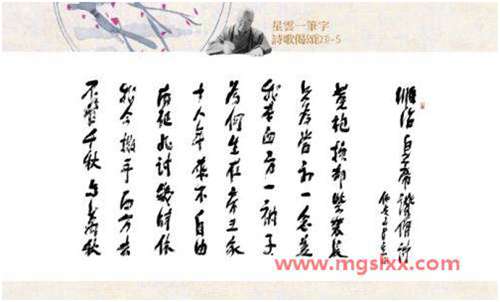 星雲一筆字
詩歌偈頌(23)-5
順治皇帝讚僧詩
黃袍換卻紫袈裟
只為當初一念差
我本西方一衲子
為何生在帝王家
十八年來不自由
南征北討幾時休
我今撒手西方去
不管千秋與萬秋
www.mgslxx.com